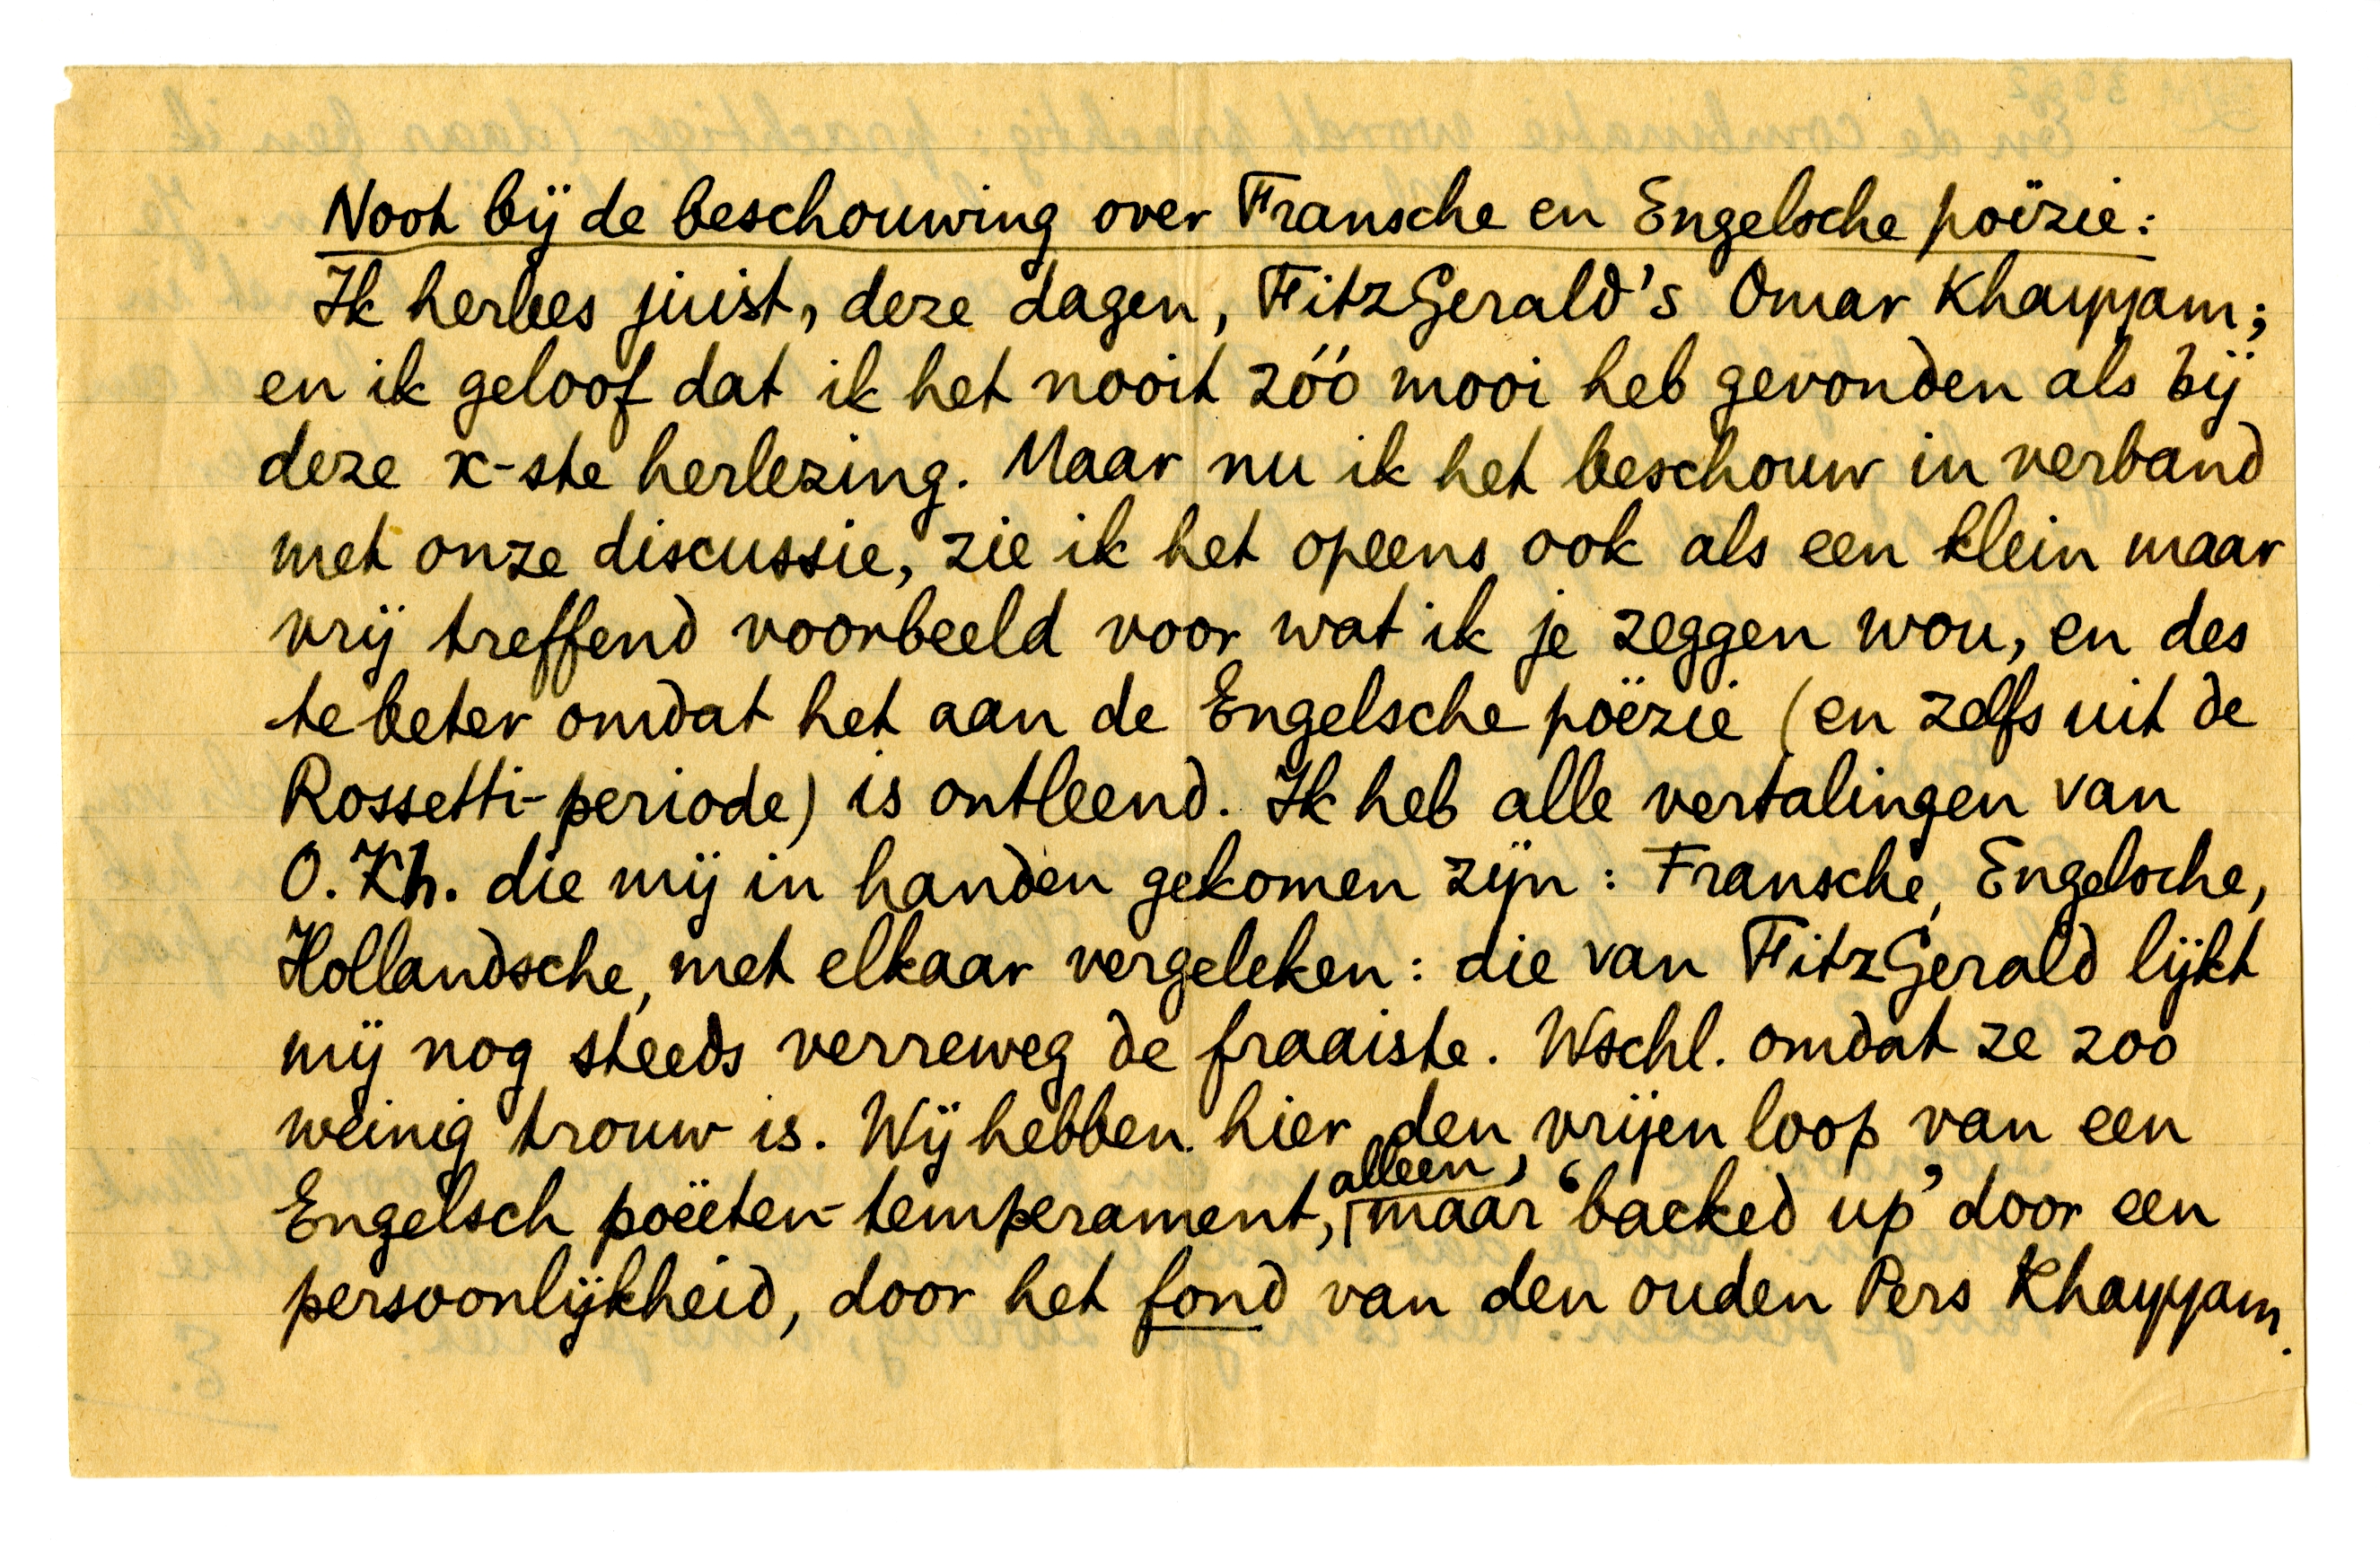 Noot bij de beschouwing over Fransche en Engelsche poëzie:
Ik herlees juist, deze dagen, FitzGerald's Omar Khayyam;
en ik geloof dat ik het nooit zóó mooi heb gevonden als bij
deze x-ste herlezing. Maar nu ik het beschouw in verband
met onze discussie, zie ik het opeens ook als een klein maar
vrij treffend voorbeeld voor wat ik je zeggen wou, en des
te beter omdat het aan de Engelsche poëzie (en zelfs uit de
Rossetti-periode) is ontleend. Ik heb alle vertalingen van
O. Kh. die mij in handen gekomen zijn: Fransche, Engelsche,
Hollandsche, met elkaar vergeleken: die van FitzGerald lijkt
mij nog steeds verreweg de fraaiste. Wschl. omdat ze zoo
weinig trouw is. Wij hebben hier den vrijen loop van een
alleen,
Engelsch poëeten-temperament, maar ‘backed up’ door een
persoonlijkheid, door het fond van den ouden Pers Khayyam.